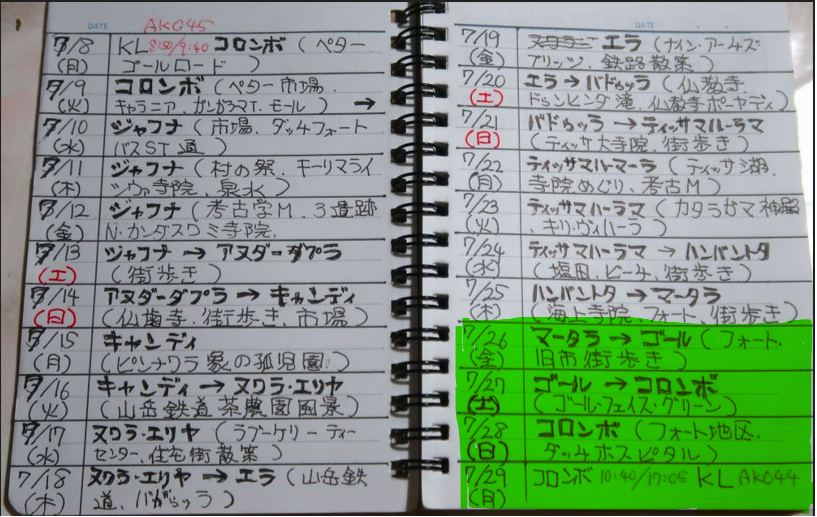 DATE
AK045
7/8 KL 8:50/9:40 コロンボ (ペター
(月) ゴールロード)
7/9 コロンボ (ペター市場.
(火) キャラニア、ガンガラマT、モール) →
7/10 ジャフナ (市場、ダッチフォート
(水) バスST 道)
7/11 ジャフナ (村の祭、キーリマライ
(木) シヴァ寺院、泉水)
7/12 ジャフナ (考古学M、3遺跡
(金) N・カンダスワミ寺院.
7/13 ジャフナ → アヌダーダプラ
(土) (街歩き)
7/14 アヌダーダプラ → キャンディ
(日) (仏歯寺、街歩き、市場)
7/15 キャンディ
(月) (ピンナワラ象の孤児園)
7/16 キャンディ → ヌワラ・エリヤ
(火) (山岳鉄道茶農園風景)
7/17 ヌワラ・エリヤ (ラブーケリーティー
(水) センター、住宅街散策)
7/18 ヌワラ・エリヤ → エラ (山岳鉄
(木) 道、)
DATE
7/19 エラ (ナイン・アーチズ
(金) ブリッジ、鉄路散策)
7/20 エラ → バドゥッラ (仏教寺.
(土) ドゥンヒンダ滝、仏教寺ポーヤディ)
7/21 バドゥッラ → ティッサマハーラマ
(日) (ティッサ大寺院、街歩き)
7/22 ティッサマハーマーラ (ティッサ湖.
(月) 寺院めぐり、考古M)
7/23 ティッサマハーラマ (カタラガマ神殿
(火) 、キリ・ヴィハーラ)
7/24 ティッサマハーラマ → ハンバントタ
(水) (塩田、ビーチ、街歩き)
7/25 ハンバントタ → マータラ
(木) (海上寺院、フォート、街歩き)
7/26 マータラ → ゴール (フォート.
(金) 旧市街歩き)
7/27 ゴール → コロンボ
(土) (ゴール・フェイス・グリーン)
7/28 コロンボ (フォート地区.
(日) ダッチホスピタル)
7/29 コロンボ 10:40/17:05 KL AK044
(月)